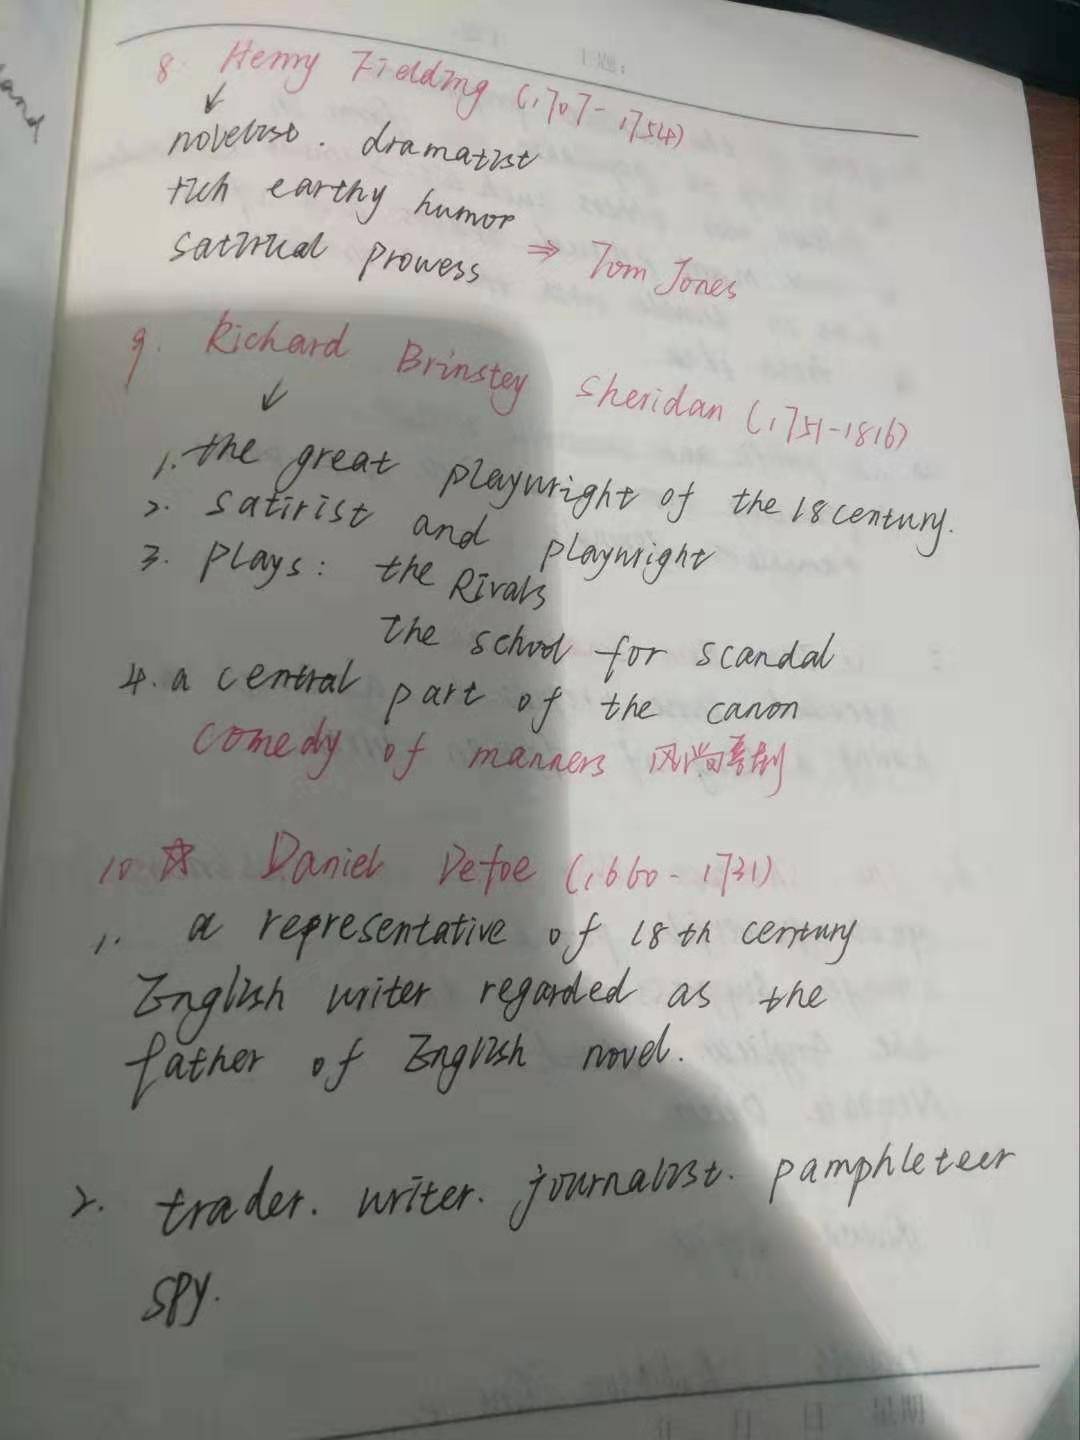 and
8. Henry Fielding (1707-1754)
↓
novelist. dramatist
rich earthy humor
satirical prowess ⇒ Tom Jones
9. Richard Brinstey Sheridan (1751-1816)
↓
1. the great playwright of the 18 century.
2. satirist and playwright
3. plays: the Rivals
the school for scandal
4. a central part of the canon
comedy of manners 风尚喜剧
10 ☆ Daniel Defoe (1660-1731)
1. a representative of 18th century
English writer regarded as the
father of English novel.
2. trader. writer. journalist. pamphleteer
spy.